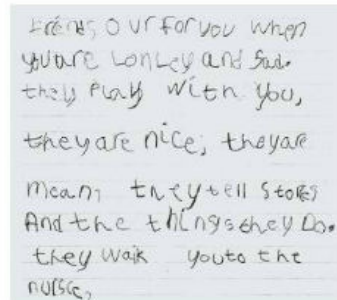 Friends our for you when
you are Lonley and Sad.
they Play with you,
they are nice, they are
mean, they tell stores
And the things they Do.
they walk you to the
nurse,